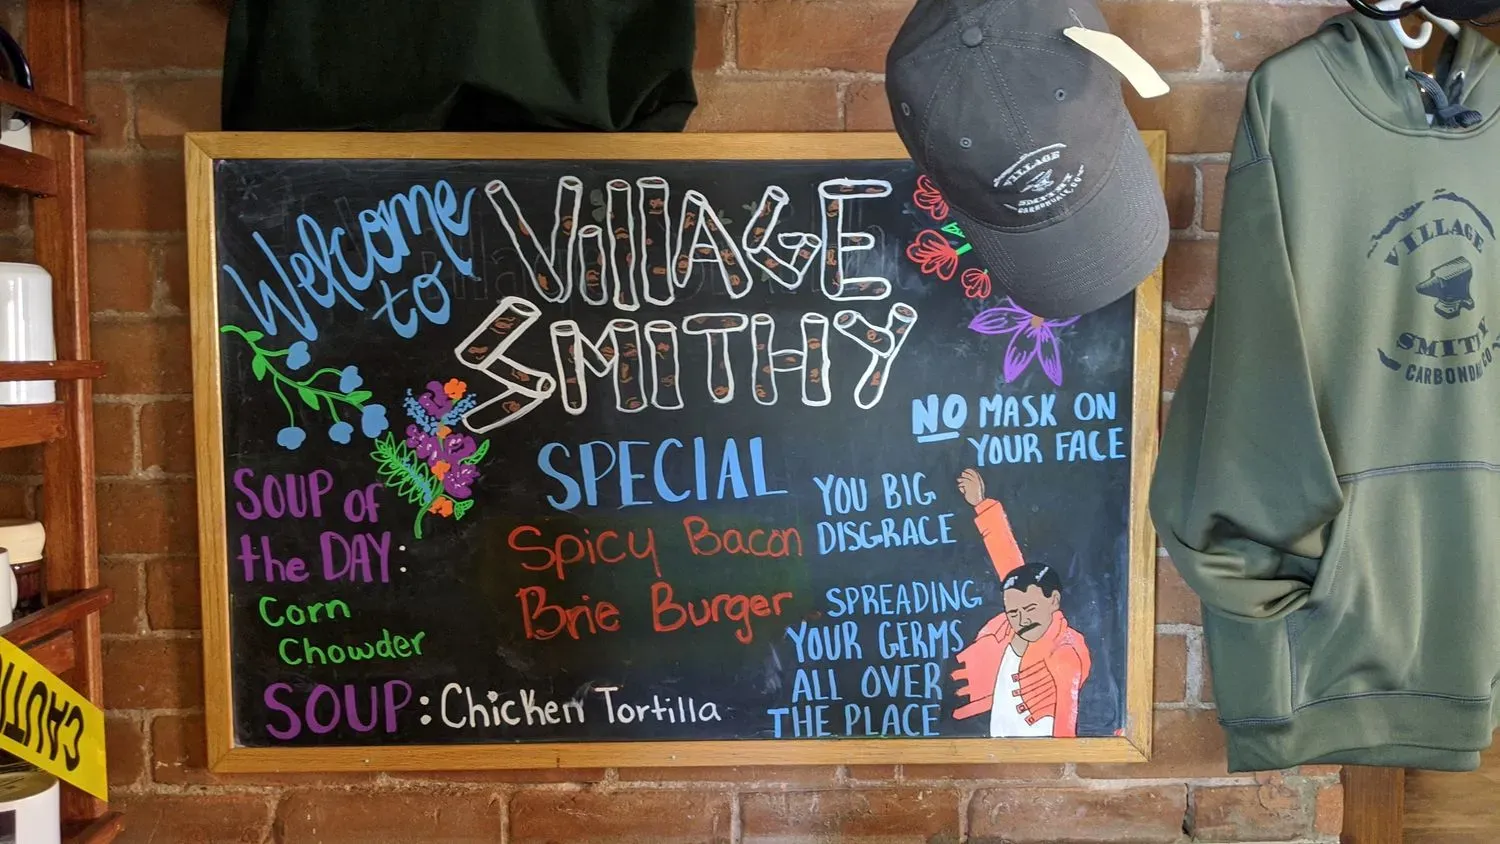 Welcome
to
VillAGE
SMITHY
SOUP of
the DAY:
Corn
Chowder
SOUP: Chicken Tortilla
SPECIAL
Spicy Bacon
Brie Burger
NO MASK ON
YOUR FACE
YOU BIG
DISGRACE
SPREADING
YOUR GERMS
ALL OVER
THE PLACE
VILLAGE
SMITHY
CARBONDALE, CO
VILLAGE
SMITHY
CARBONDALE CO
CAUTIO